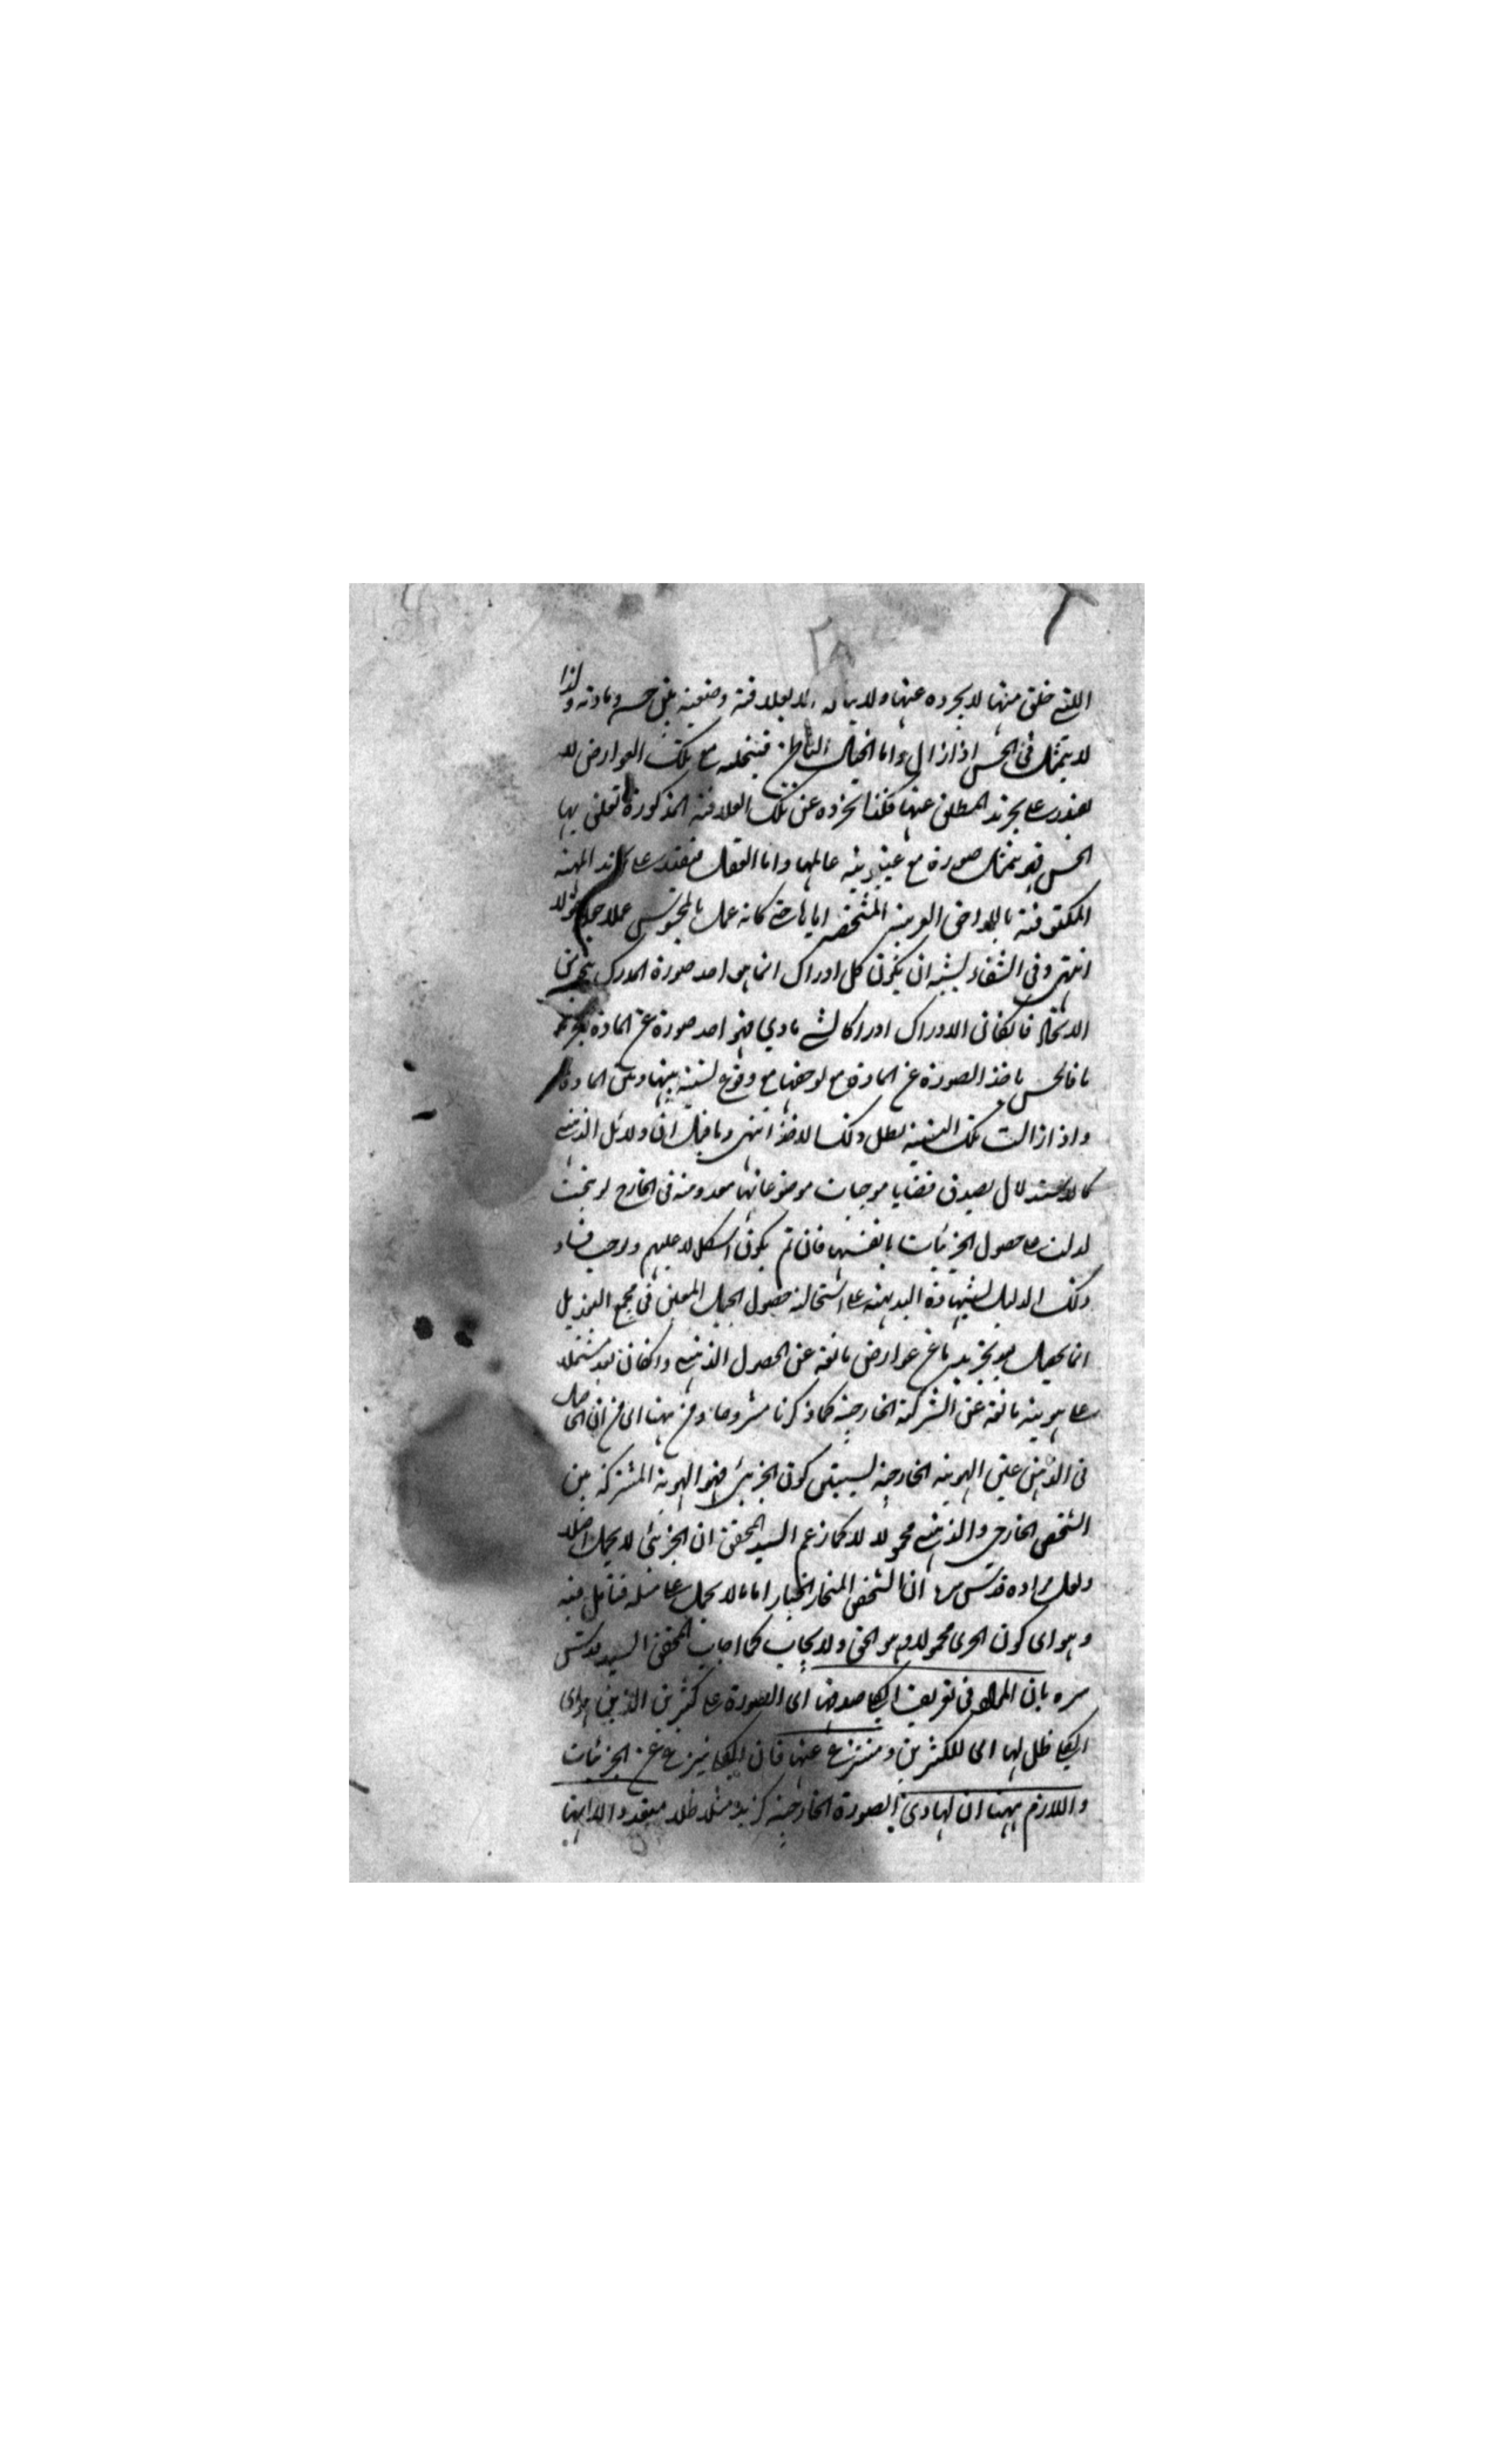 ٢٨
التي خلق منها لا يجرده عنها ولا يناله الا بعلاقة وضعية بين حسه ومادته ولذا
لا يتمثل في الحس اذا زال واما الخيال الباطن فيتخيله مع تلك العوارض لا
يقدر على تجريده المطلق عنها لكنه يجرده عن تلك العلاقة المذكورة تعلق بها
الحس فهو يتمثل صورة مع غيبوبة حاملها واما العقل فيقتدر على تجريد المهية
المكنوفة باللواحق الغريبة المشخصة اياها حتى كانه عمل بالمحسوس عملا جعله معقولا
انتهى وفي الشفاء يشبه ان يكون كل ادراك انما هو اخذ صورة المدرك بنحو من
الانحاء فان كان الادراك ادراكا لشيء مادي فهو اخذ صورة عن المادة تجريدا
ما فالحس ياخذ الصورة عن المادة مع لواحقها مع وقوع نسبة بينها وبين المادة
واذا زالت تلك النسبة بطل ذلك الاخذ انتهى وما قيل ان دلائل الذهني
كالاستدلال بصدق قضايا موجبات موضوعاتها معدومة في الخارج لو تمت
لدلت على حصول الجزئيات بانفسها فان تم يكون اشكالا عليهم ويوجب فساد
ذلك الدليل بشهادة البديهة على استحالة حصول الجبل المعين في مجمع
انما يحصل بعد تجريد ما عن عوارض مانعة عن الحصول الذهني وان كان بعد مشتملا
على هوية مانعة عن الشركة الخارجية كما ذكرنا مشروحا ومن ههنا اي من ان الحاصل
في الذهن عين الهوية الخارجية يستبين كون الجزئي فهو الهوية المشتركة بين
الشخص الخارجي والذهني محمولا لا كما زعم السيد المحقق ان الجزئي لا يحمل اصلا
ولعل مراده قدس سره ان الشخص المنحاز لا يحمل على مثله فتأمل فيه
وهو اي كون الجزئي محمولا هو الحق ولا يجاب كما اجاب المحقق السيد قدس
سره بان المراد في تعريف الكلي صدقها اي الصورة على كثيرين الذين هو اي
الكلي ظل لها اي للكثيرين ومنتزع عنها فان الكلي ينزع عن الجزئيات
واللازم ههنا ان لهادى الصورة الخارجية كزيد مثلا ظلا متعددا لا انها